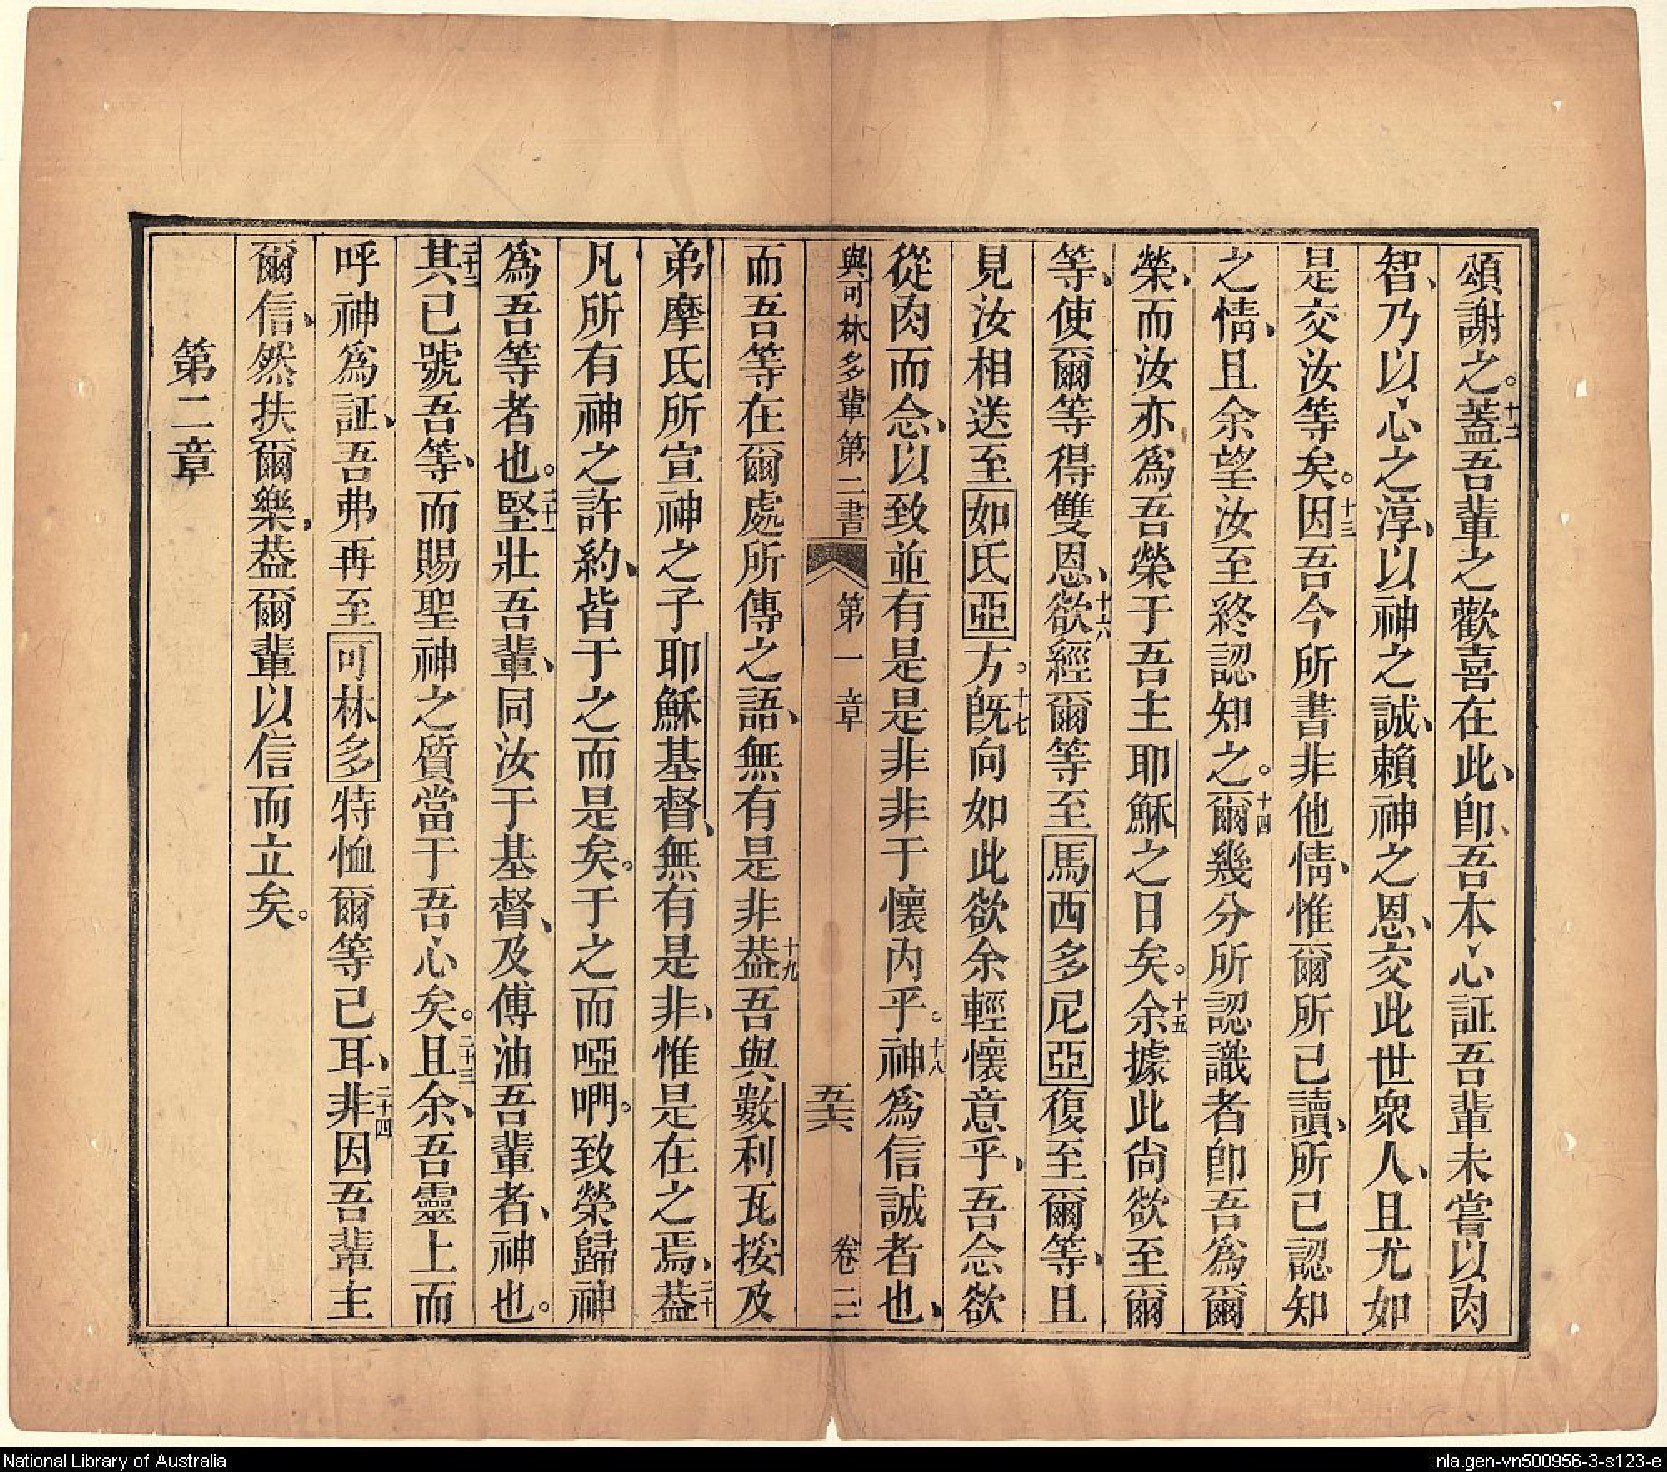 頌謝之。十二蓋吾輩之歡喜在此、卽、吾本心証吾輩未嘗以肉
智、乃以心之淳、以神之誠、賴神之恩、交此世衆人、且尤如
是交汝等矣。十三因吾今所書非他情、惟爾所已讀、所已認知
之情、且余望汝至終認知之。十四爾幾分所認識者卽吾爲爾
榮、而汝亦爲吾榮于吾主耶穌之日矣。十五余據此尙欲至爾
等、使爾等得雙恩、十六欲經爾等至馬西多尼亞復至爾等、且
見汝相送至如氐亞方。十七旣向如此欲余輕懷意乎、吾念欲
從肉而念、以致並有是是非非于懷內乎。十八神爲信誠者也、
與可林多輩第二書 第一章 五十六 卷二
而吾等在爾處所傳之語、無有是非十九葢吾與數利瓦按及
弟摩氐所宣神之子耶穌基督、無有是非、惟是在之焉、二十葢
凡所有神之許約、皆于之而是矣。于之而啞嗎。致榮歸神
爲吾等者也。二十一堅壯吾輩、同汝于基督、及傅油吾輩者、神也。
二十二其已號吾等、而賜聖神之質當于吾心矣。二十三且余、吾靈上而
呼神爲証、吾弗再至可林多特恤爾等已耳、二十四非因吾輩主
爾信、然扶爾樂、葢爾輩以信而立矣。
第二章
National Library of Australia
nla.gen-vn500956-3-s123-e